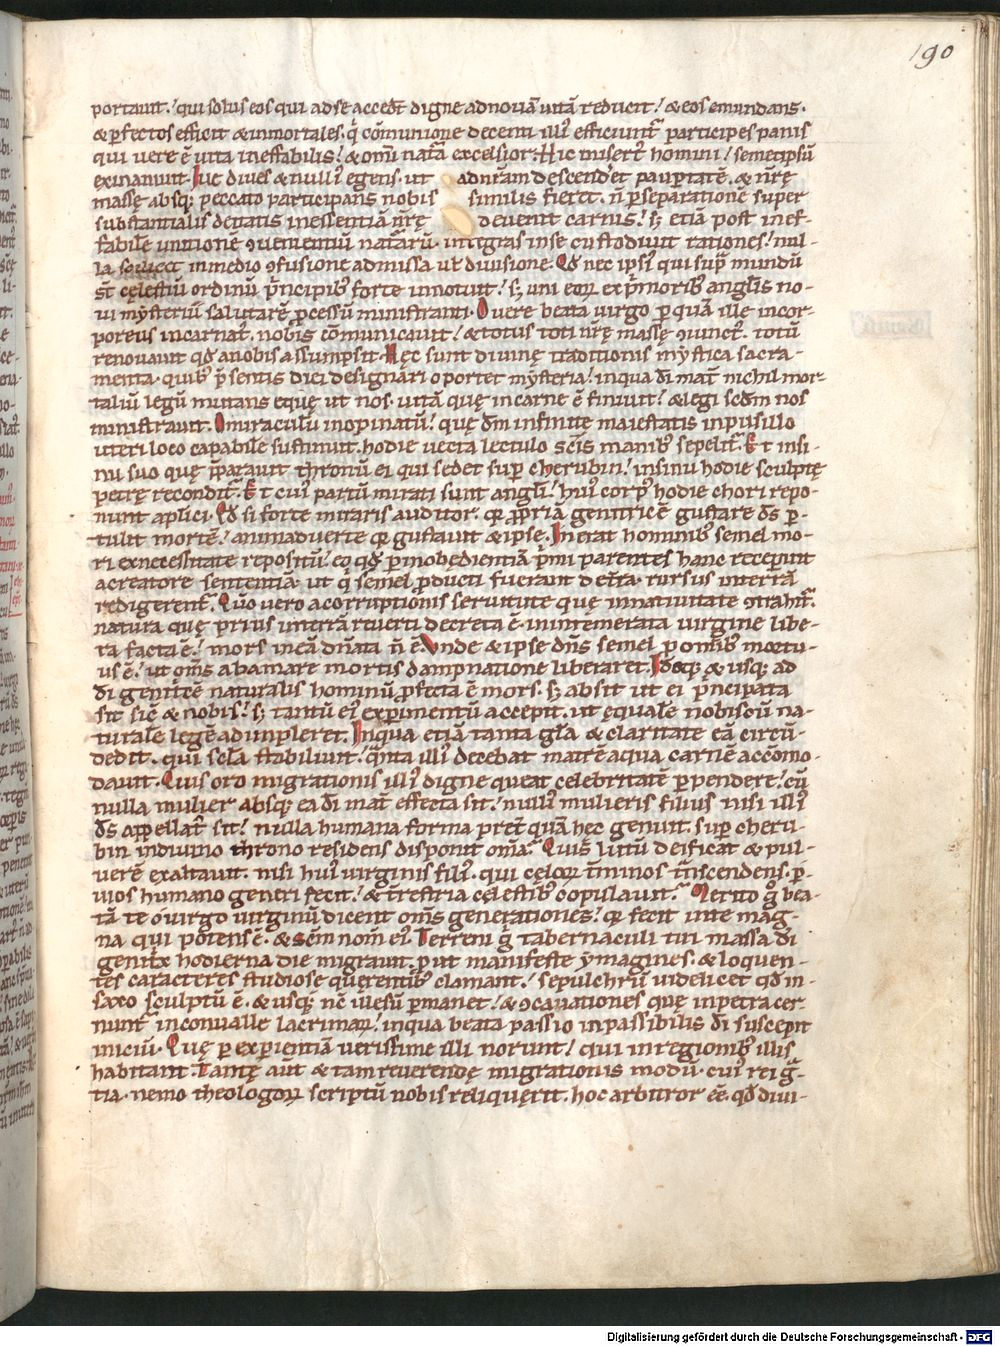 190
portauit. qui solus eos qui ad se accedt̄ digne ad nouā uitā reducit. & eos emundans.
& ꝑfectos efficit & inmortales. q̇ cōmunione decenti illiꝰ efficiunt᷑ participes panis
qui uere ē uita ineffabilis. & omni nat᷑a excelsior. Hic misert᷑ homini semetipsū
exinaniuit. Hic diues & nulliꝰ egens. ut ad nr̄am descendet paupertatē. & nr̄ę
massę absq; peccato participans nobis similis fieret. n̄ ꝑ separationē super
substantialis deitatis in essentiā nr̄ę deuenit carnis. s; etiā post inef-
fabile unitione ꝯuenientiū nat᷑arū. integras in se custodiuit rationes. nul-
la scilicet in medio ꝯfusione admissa ut᷑ diuisione. Qd̄ nec ipsis qui sup᷑ mundū
st̄ cęlestiū ordinū p᷑ncipibꝰ forte innotuit. s; uni eoꝝ ex p᷑moribꝰ angłis no-
ui mysteriū salutarē ꝓcessū ministranti. O uere beata uirgo ꝑ quā ille incor-
poreus incarnat᷑. nobis cōmunicauit. & totus toti nr̄ę massę ꝯiunct᷑. totū
renouauit qd̄ a nobis assumpsit. Hęc sunt diuinę traditionis mystica sacra-
menta. quibꝰ p̄sentis diei designari oportet mysteria. in qua dī mat᷑ nichil mor-
taliū legū mutans eque ut nos. uitā quę in carne ē finiuit. & legi scd̄m nos
ministrauit. O miraculū inopinatū. quę dm̄ infinite maiestatis in pusillo
uteri loco capabile sustinuit. hodie uecta lectulo scīs manibꝰ sepelit᷑. Et in si-
nu suo quę p̄parauit thronū ei qui sedet sup᷑ cherubin. in sinu hodie sculptę
petrę recondit᷑. Et cuiꝰ partū mirati sunt angłi. huiꝰ corpꝰ hodie chori repo-
nunt apłici. Qd̄ si forte miraris auditor. qr̄ ꝓpriā genitricē gustare ds̄ ꝑ-
tulit mortē. animaduerte qr̄ gustauit & ipse. Inerat hominibꝰ semel mo-
ri ex necessitate repositū. eo qd̄ ꝑ inobedientiā p᷑mi parentes hanc receperunt
a creatore sententiā. ut q̇ semel ꝓducti fuerant de t᷑ra. rursus in terrā
redigerent᷑. Qūo uero a corruptionis seruitute quę in natiuitate ꝯtrahit᷑.
natura quę prius in terrā reuerti decreta ē. in intemerata uirgine libe-
ra facta ē. mors in eā dn̄ata n̄ ē. Vnde & ipse dn̄s semel ꝑ omībꝰ mortu-
us ē. ut om̄s ab amare mortis dampnatione liberaret. Idcq; & usq; ad
dī genitcē naturalis hominū ꝓfecta ē mors. s; absit ut ei p᷑ncipata
sit sic̄ & nobis. s; tantū eiꝰ experimentū accepit. ut ęqualē nobiscū na-
turalē legē adimpleret. In qua etiā tanta głā & claritate eā circū-
dedit. qui scł̄a stabiliuit. q̄nta illiꝰ decebat matrē a qua carnē accōmo-
dauit. Quis ordo migrationis illiꝰ digne queat celebritatē ꝑpendere. cū
nulla mulier absq; ea dī mat᷑ effecta sit. nulliꝰ mulieris filius nisi illiꝰ
ds̄ appellatꝰ sit. nulla humana forma pret᷑ quā hec genuit. sup᷑ cheru-
bin in diuino throno residens disponit om̄a. Quis lutū deificat & pul-
uerē exaltauit. nisi huiꝰ uirginis filiꝰ. qui cęloꝝ t᷑minos t̄nscendens. ꝑ-
uios humano generi fecit. & t᷑restria cęlestibꝰ copulauit. Merito g̊ bea-
tā te o uirgo uirginū dicent om̄s generationes. qr̄ fecit in te mag-
na qui potens ē. & scm̄ nom̄ eiꝰ. Terreni g̊ tabernaculi tui massa dī
genit᷑x hodierna die migraut. ꝓut manifeste ymagines. & loquen-
tes caracteres studiose querentibꝰ clamant. sepulchrū uidelicet qd̄ in
saxo sculptū ē. & usq; nc̄ illesū ꝑmanet. & ꝯcauationes quę in petra cer-
nunt᷑ in conualle lacrimaꝝ. in qua beata passio inpassibilis dī suscepit
iniciū. Quę ꝑ experientiā uerissime illi norunt. qui in regionibꝰ illis
habitant. Tantę aut̄ & tam reuerendę migrationis modū. cuiꝰ rei g̊-
tia. nemo theologoꝝ scriptū nobis reliquerit. hoc arbitror eē. qd̄ diui-
Digitalisierung gefördert durch die Deutsche Forschungsgemeinschaft - DFG